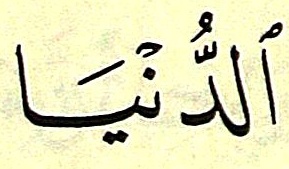 ٱلدُّنۡيَا